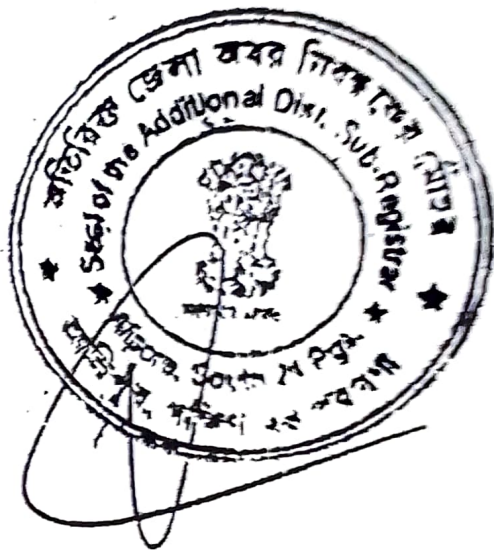 অতিরিক্ত জেলা অবর নিবন্ধকের মোহর
Seal of the Additional Dist. Sub-Registrar
Alipore, South 24 Pgs.
আলিপুর, দক্ষিণ ২৪